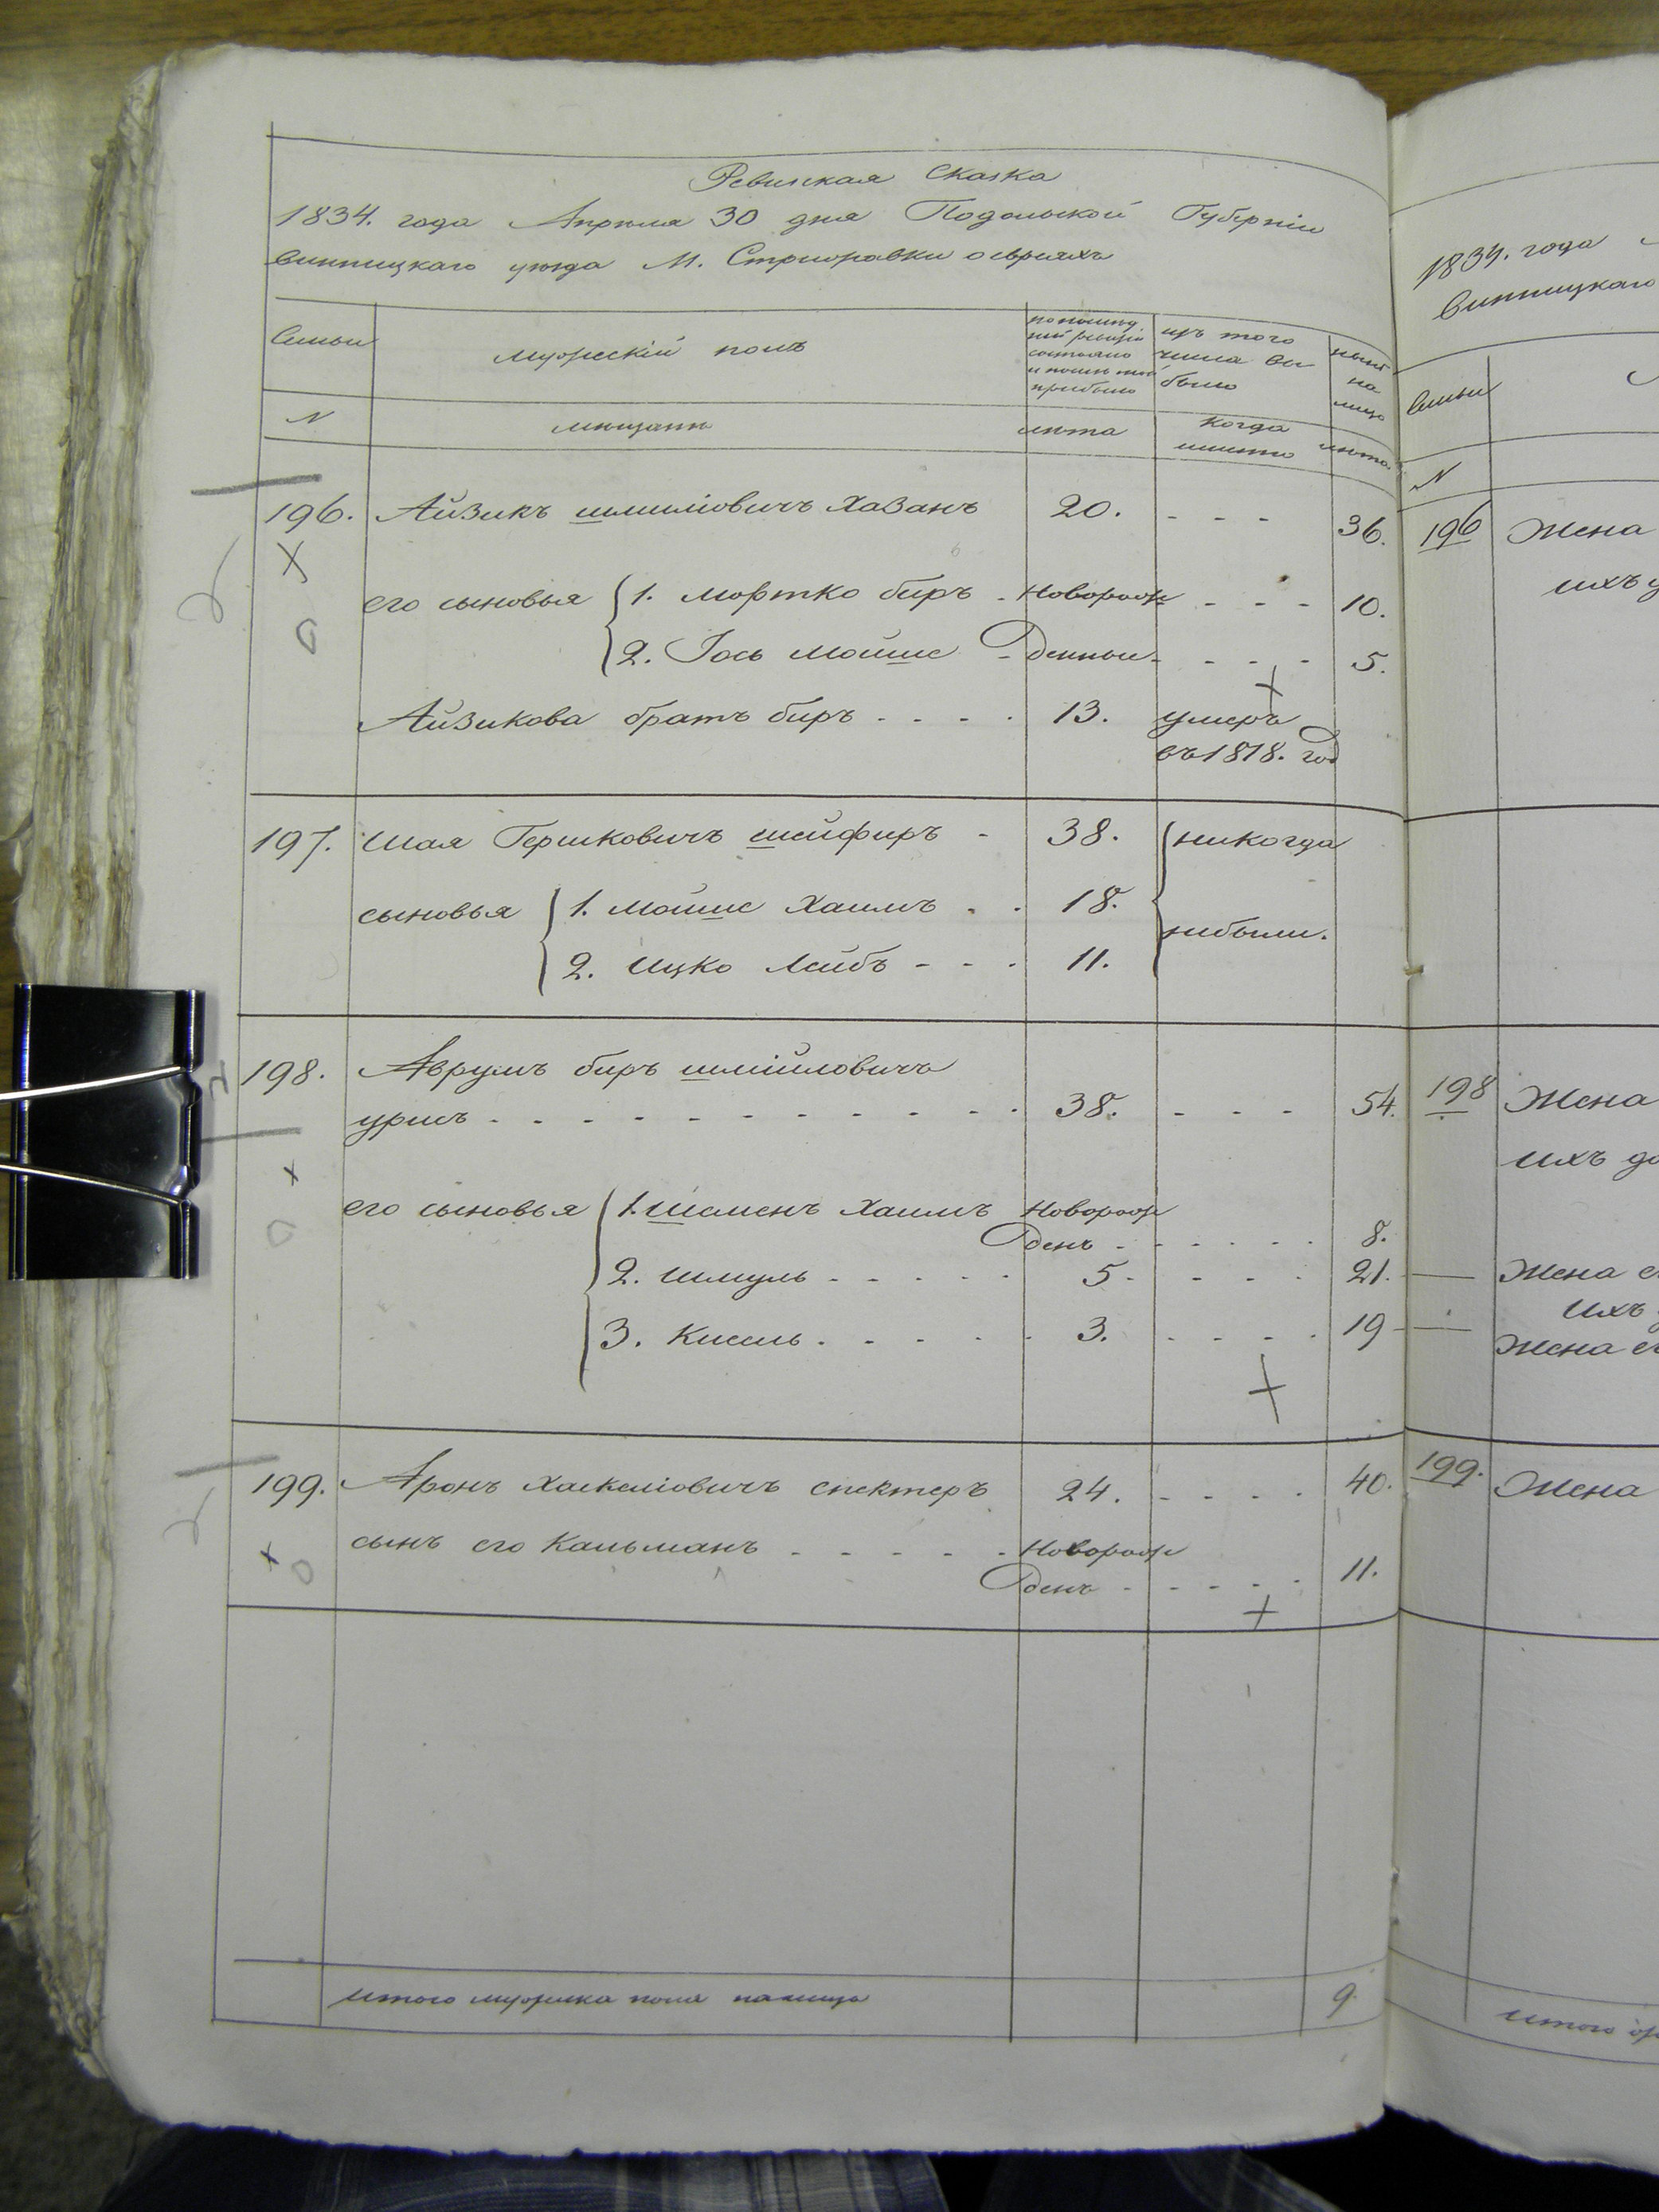 Ревизская Сказка
1834. года Апреля 30 дня Подольской Губерніи
Винницкаго уезда М. Стрижовки о евреяхъ
Семьи
мужескій полъ
по послед.
ней ревизіи
состояло
и после того
прибыло
изъ того
числа вы
было
ныне
на
лицо
N
мещане
лета
когда
именно
лета
196. Айзикъ шмиліовичъ Хазанъ 20. - - - 36.
его сыновья 1. мортко биръ - Новорож - - - 10.
2. Іось мойше - денные - - - 5.
Айзикова братъ биръ - - - - 13. умеръ
въ 1818. год
197. Шая Гершковичъ шейфиръ - 38. никогда
сыновья 1. мойше Хаимъ - - 18.
небыли.
2. Ицко Лейбъ - - - 11.
198. Аврумъ биръ шмійловичъ
урисъ - - - - - - - - - - 38. - - - 54.
его сыновья 1. шеменъ Хаимъ Новорож
денъ - - - - - 8.
2. шмуль - - - - - 5 - - - - 21.
3. Кисель - - - - - 3. - - - - 19
199. Аронъ Хаскеліовичъ спектеръ 24. - - - - 40.
сынъ его Кальманъ - - - - - Новорож
денъ - - - - - 11.
итого мужеска пола налицо 9.
1834. года
Винницкаго
Семьи
N
196 Жена
ихъ
198 Жена
ихъ до
Жена е
ихъ
Жена е
199. Жена
итого